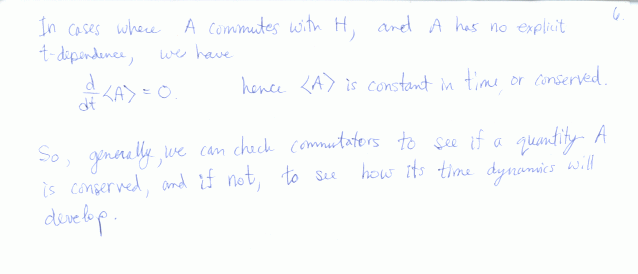 6.
In cases where A commutes with H, and A has no explicit
t-dependence, we have
d/dt <A> = 0. hence <A> is constant in time, or conserved.
So, generally, we can check commutators to see if a quantity A
is conserved, and if not, to see how its time dynamics will
develop.